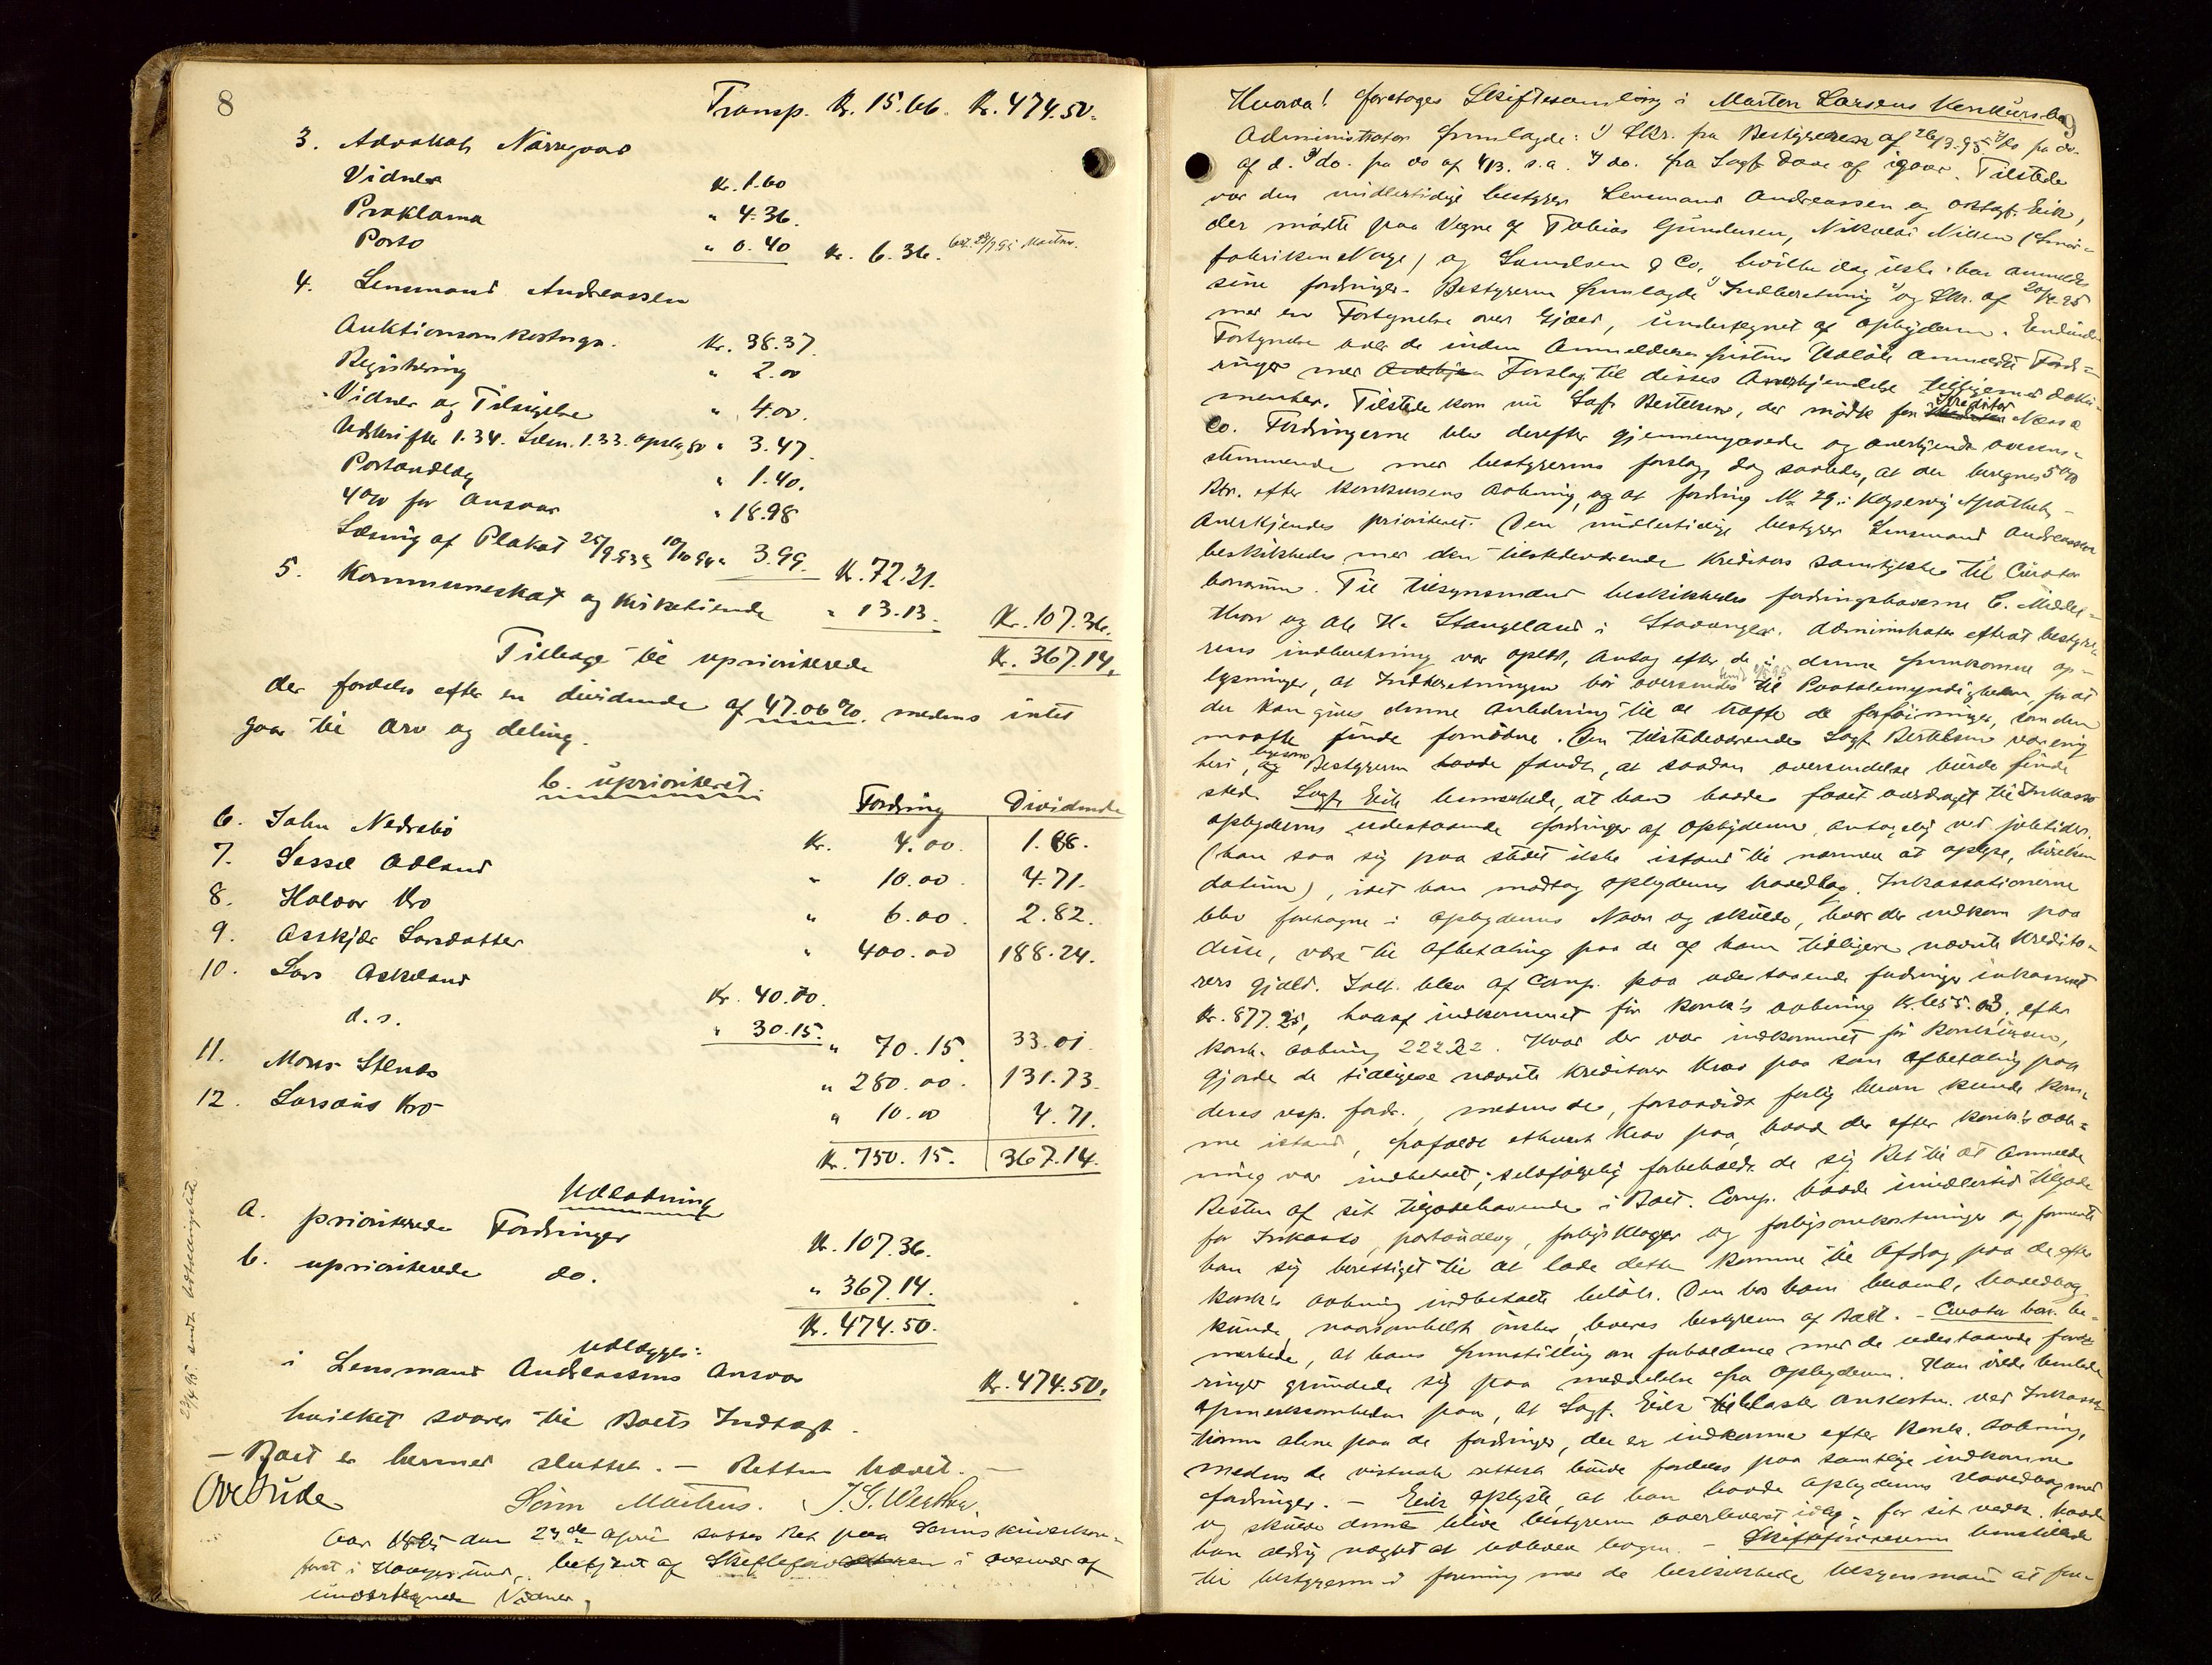 8
Transp. Kr. 15.66. Kr. 474.50.
3. Advokat Nørregaard
Vidner Kr. 1.60
Proklama " 4.36.
Porto " 0.40 Kr. 6.36.
4. Lensmand Andreassen
Auktionsomkostngr. Kr. 38.37.
Registrering " 2.00
Vidner og Tilsigelse " 4.00.
Udskrifter 1.34. Læsn. 1.33. opslag 80 " 3.47.
Portoudlæg " 1.40.
4% for Ansvar " 18.98
Læsning af Plakat 3.99. Kr. 72.21.
5. Kommuneskat og Kirketiende " 13.13. Kr. 107.36.
Tilbage til uprioriterede Kr. 367.14.
der fordeles efter en dividende af 47.06%. medens intet
gaar til arv og deling.
b. uprioriteret.
Fordring Dividende
6. John Nedrebø Kr. 4.00. 1.88.
7. Sessel Adland " 10.00. 4.71.
8. Halvor Kro " 6.00. 2.82.
9. Asskjær Larsdatter " 400.00 188.24.
10. Lars Askeland Kr. 40.00.
d. s. " 30.15. " 70.15. 33.01.
11. Mons Stensø " 280.00. 131.73.
12. Larsäus Kro " 10.00 4.71.
Kr. 750.15. 367.14.
Udlodning
a. prioriterede Fordringer Kr. 107.36.
b. uprioriterede do. " 367.14.
Kr. 474.50.
udlægges:
i Lensmand Andreassens Ansvar Kr. 474.50.
hvilket svarer til Boets Indtægt.
– Boet er hermed sluttet. – Retten hævet. –
Sørin Martens. J. G. Westbø.
Aar 1895 den 23de April sattes Ret paa Sorenskriverkon-
toret i Haugesund, betjent af Skifteforvalteren i overvær af
undertegnede Vidner,
9
Hvorda! foretoges Skiftesamling i Morten Larsens Konkursbo
Administrator fremlagde: 1) Skr. fra Bestyreren af 26/3 95 2) do fra do.
af d. 3) do. fra do af 4/3. s.a. 4) do. fra Sagf. Daae af igaar. Tilstede
var den midlertidige bestyrer Lensmand Andreassen og Sagf. Eik,
der mødte paa Vegne af Tobias Gundersen, Nikolai Nilsen (Smør-
fabriken Norge) og Samelsen & Co. hvilke dog ikke har anmeldt
sine fordringer. Bestyreren fremlagde 1) Indberetning 2) og Skr. af 20/4 95
med en Fortegnelse over Gjæld, undertegnet af opbyderen. Endvidere
Fortegnelse over de inden Anmeldelses fristens Udløb anmeldte Ford-
ringer med Forslag til disses Anerkjendelse tilligemed doku-
menter. Tilstede kom nu Sagf. Bertelsen, der mødte for Kreditor Næss &
Co. Fordringerne blev derefter gjennemgaaede og anerkjendt overens-
stemmende med bestyrerens forslag, dog saaledes, at der beregnes 5%
Rtr. efter konkursens aabning, og at fordring No 29: Kopervig Apothek
anerkjendes prioriteret. Den midlertidige bestyrer Lensmand Andreassen
beskikkedes med den tilstedeværende Kreditors samtykke til Curator
bonorum. Til tilsynsmænd beskikkedes fordringshaverne C. Middel-
thon og Ole H. Stangeland i Stavanger. Administrator efterat bestyre-
rens indberetning var oplæst, antog efter de i denne fremkomne op-
lysninger, at Indberetningen bør oversendes til Paatalemyndigheden, for at
der kan gives denne anledning til at træffe de forføininger, som den
maatte finde fornødne. Den tilstedeværende Sagf. Bertelsen var enig
heri, ligesom Bestyreren fandt, at saadan oversendelse burde finde
sted. Sagf. Eik bemærkede, at han havde faaet overdraget til Inkasso
opbyderens udestaaende fordringer af opbyderen, antagelig ved juletider.
(han saa sig paa stedet ikke istand til nærmere at oplyse, hvilken
datum), idet han modtog opbyderens hovedbog. Inkassationerne
blev foretagne i opbyderens Navn og skulde, hvad der indkom paa
disse, være til afbetaling paa de af ham tidligere nævnte Kredito-
rers gjæld. Ialt blev af Comp. paa udestaaende fordringer inkasseret
Kr. 877.25, hvoraf indkommet før konk's aabning Kr. 655.03, efter
konk. aabning 222.22. Hvad der var indkommet før Konkursen,
gjorde de tidligere nævnte kreditorer Krav paa som afbetaling paa
deres resp. fordr., medens de, forsaavidt forlig herom kunde kom-
me istand, frafaldt ethvert Krav paa, hvad der efter Konk's aab-
ning var indbetalt; selvfølgelig forbeholdt de sig Ret til at anmelde
Resten af sit tilgodehavende i Boet. Comp. havde imidlertid tilgode
for Inkasso, portoudlæg, forligsklager og forligsomkostninger og formente
han sig berettiget til at lade dette komme til Afdrag paa de efter
konk's aabning indbetalte beløb. Den hos ham beroende hovedbog
kunde, naarsomhelst ønskes, leveres bestyreren af Boet. – Curator bon. be-
mærkede, at hans fremstilling om forholdene med de udestaaende ford-
ringer grundede sig paa meddelelse fra opbyderen. Han vilde henlede
opmærksomheden paa, at Sagf. Eik tillaster omkostn. ved Inkassa-
tionen alene paa de fordringer, der er indkomne efter Konk. aabning,
medens de vistnok rettest burde fordeles paa samtlige indkomne
fordringer. – Eik oplyste, at han havde opbyderens hovedbog med
og skulde denne blive bestyreren overleveret idag; for sit vedk. havde
han aldrig nægtet at udlevere bogen. – Skifteforvalteren henstillede
til bestyreren i forening med de beskikkede tilsynsmænd at fore-